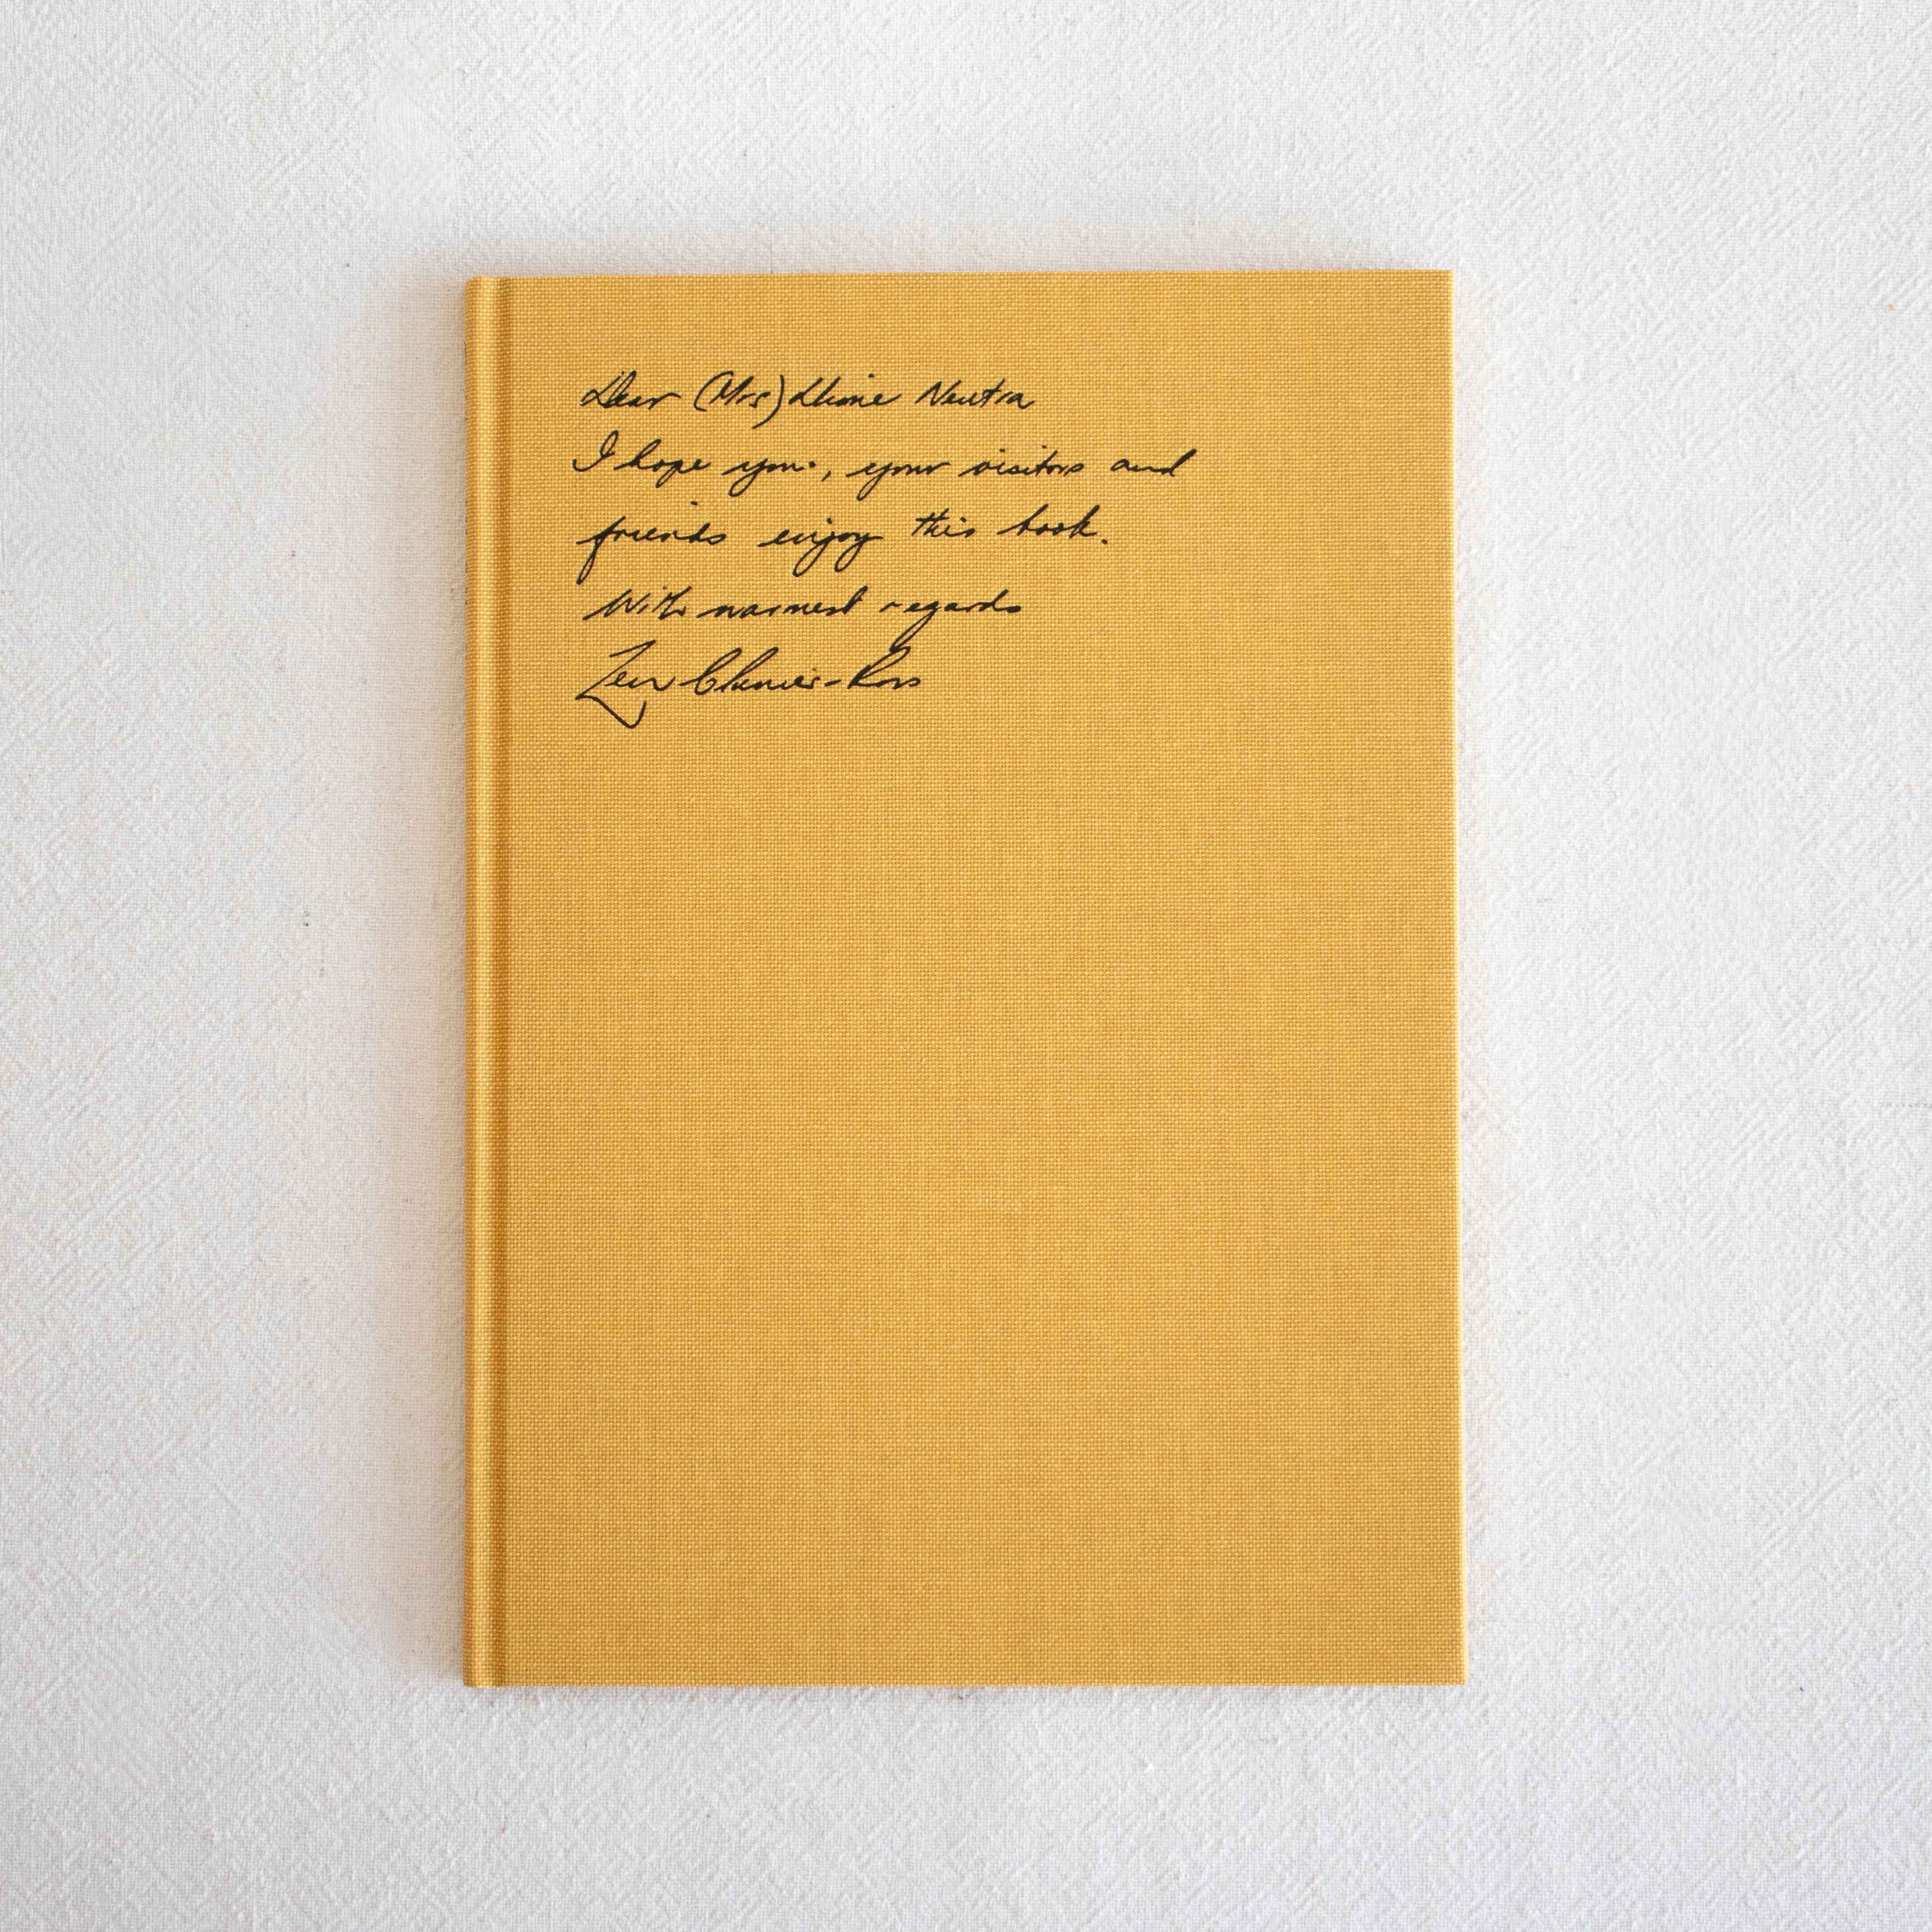 Dear (Mrs) Dione Neutra
I hope you, your visitors and
friends enjoy this book.
With warmest regards
Clunies-Ross